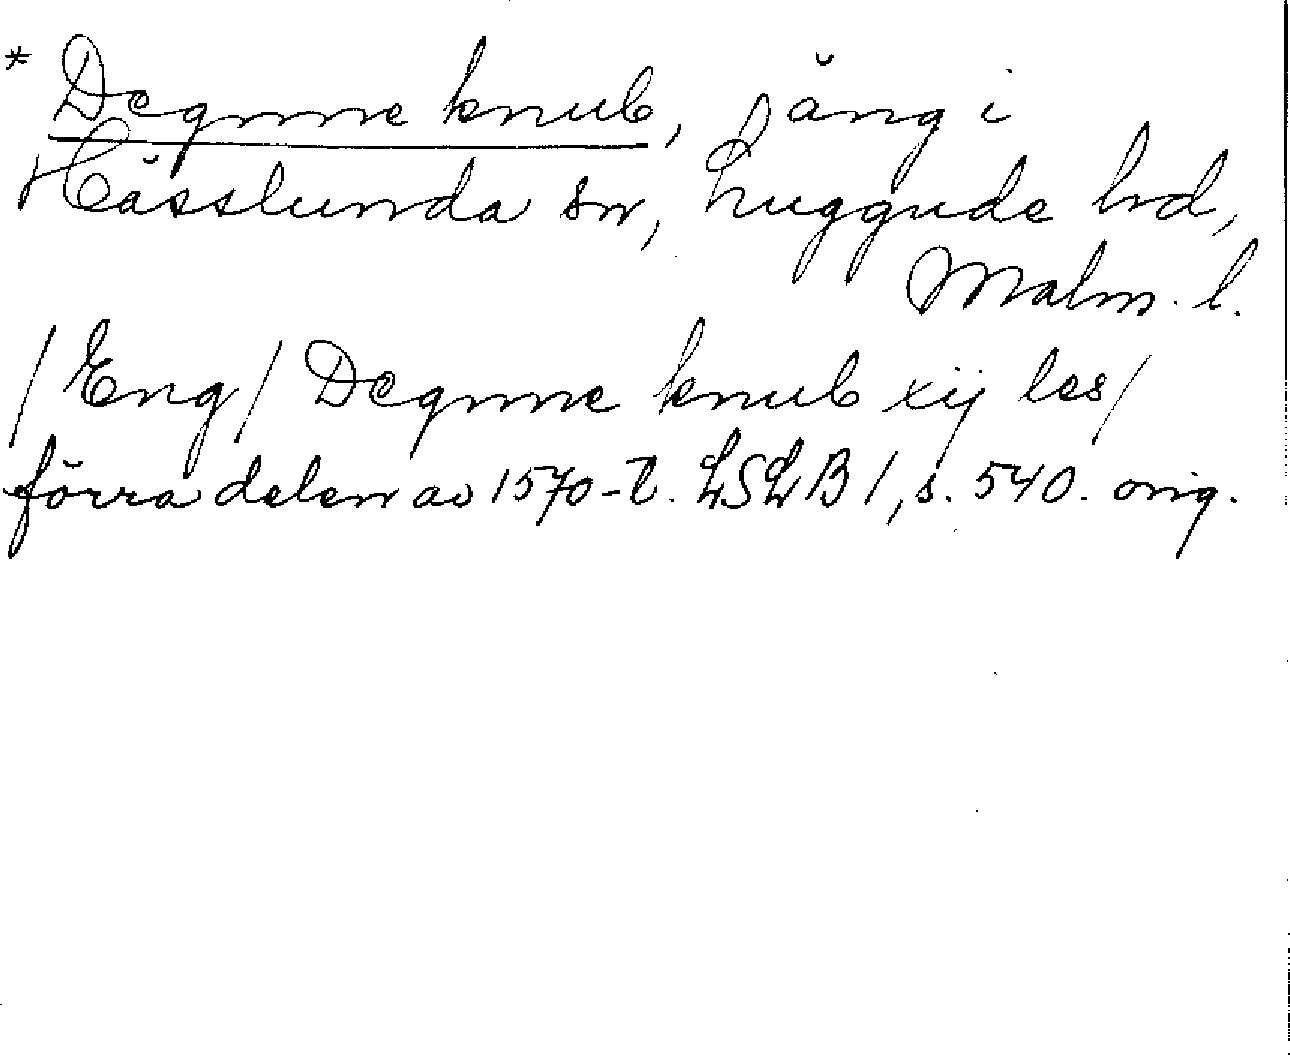 * Degnne knub, f äng i
Hässlunda sn, Luggude hd,
Malm. l.
/Eng/ Degnne knub xij les/
förra delen av 1570-t. LSLB 1, s. 540. orig.